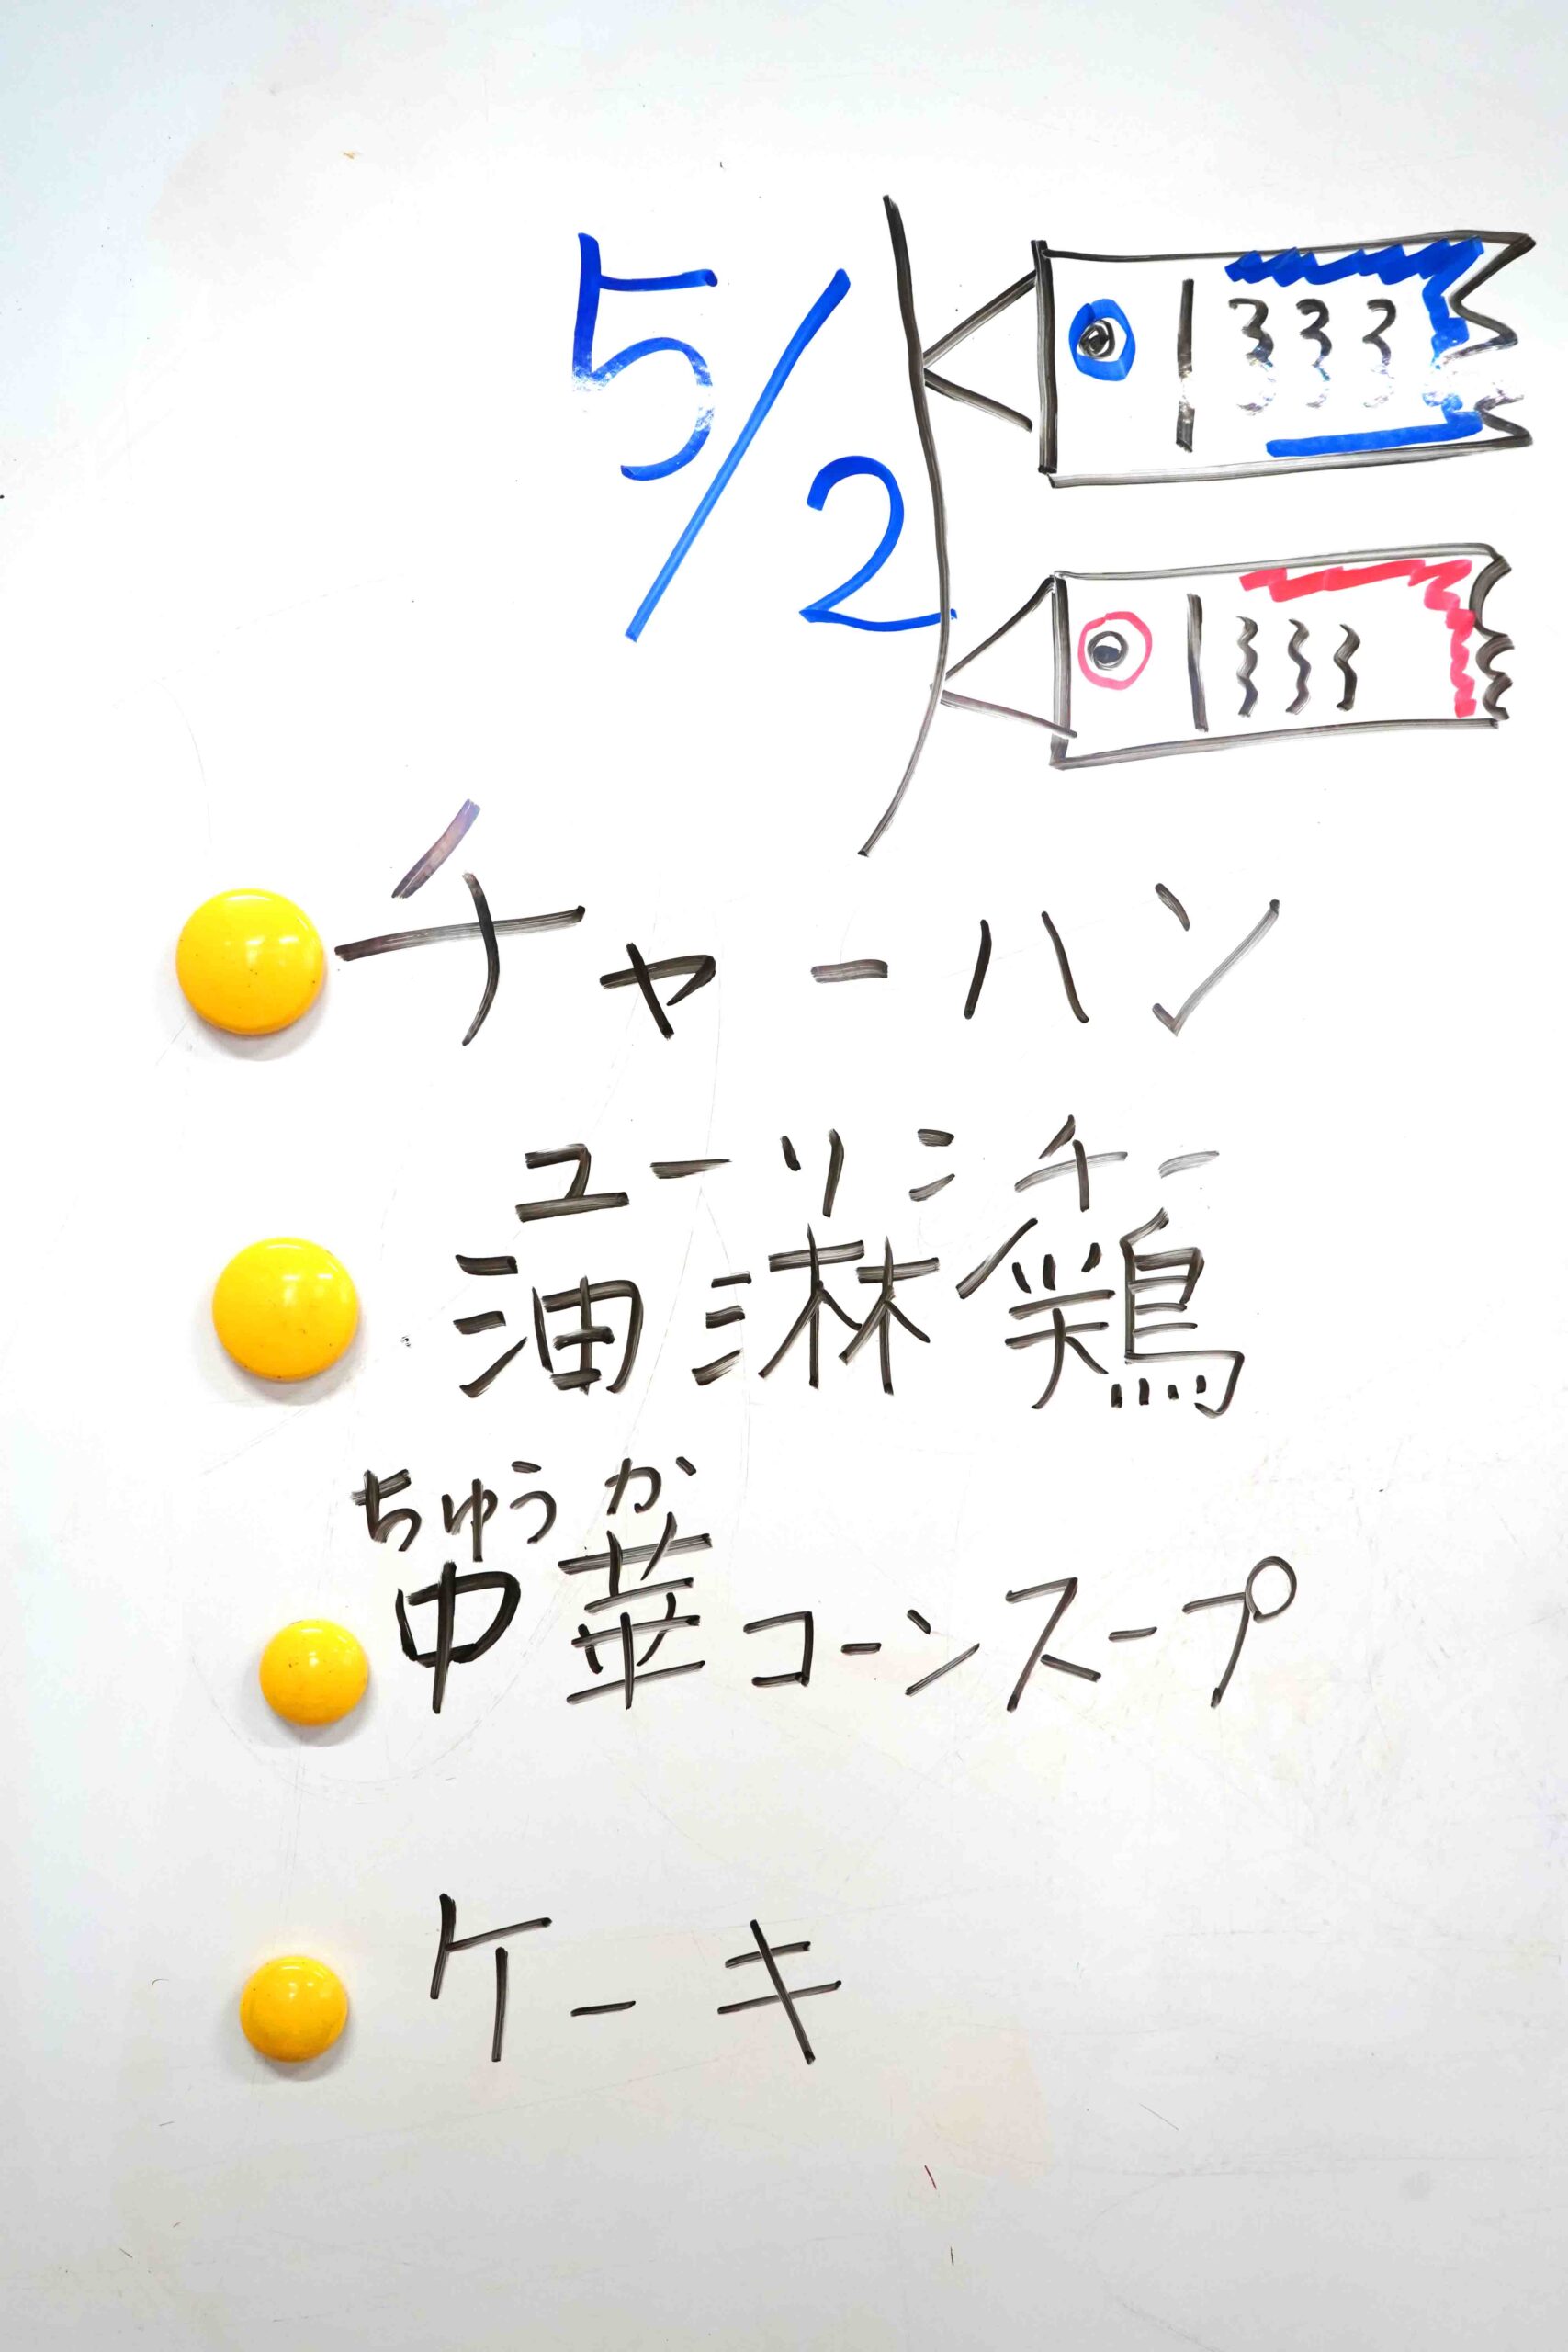 5/2
チャーハン
ユーリンチー
油淋鶏
ちゅうか
中華コーンスープ
ケーキ